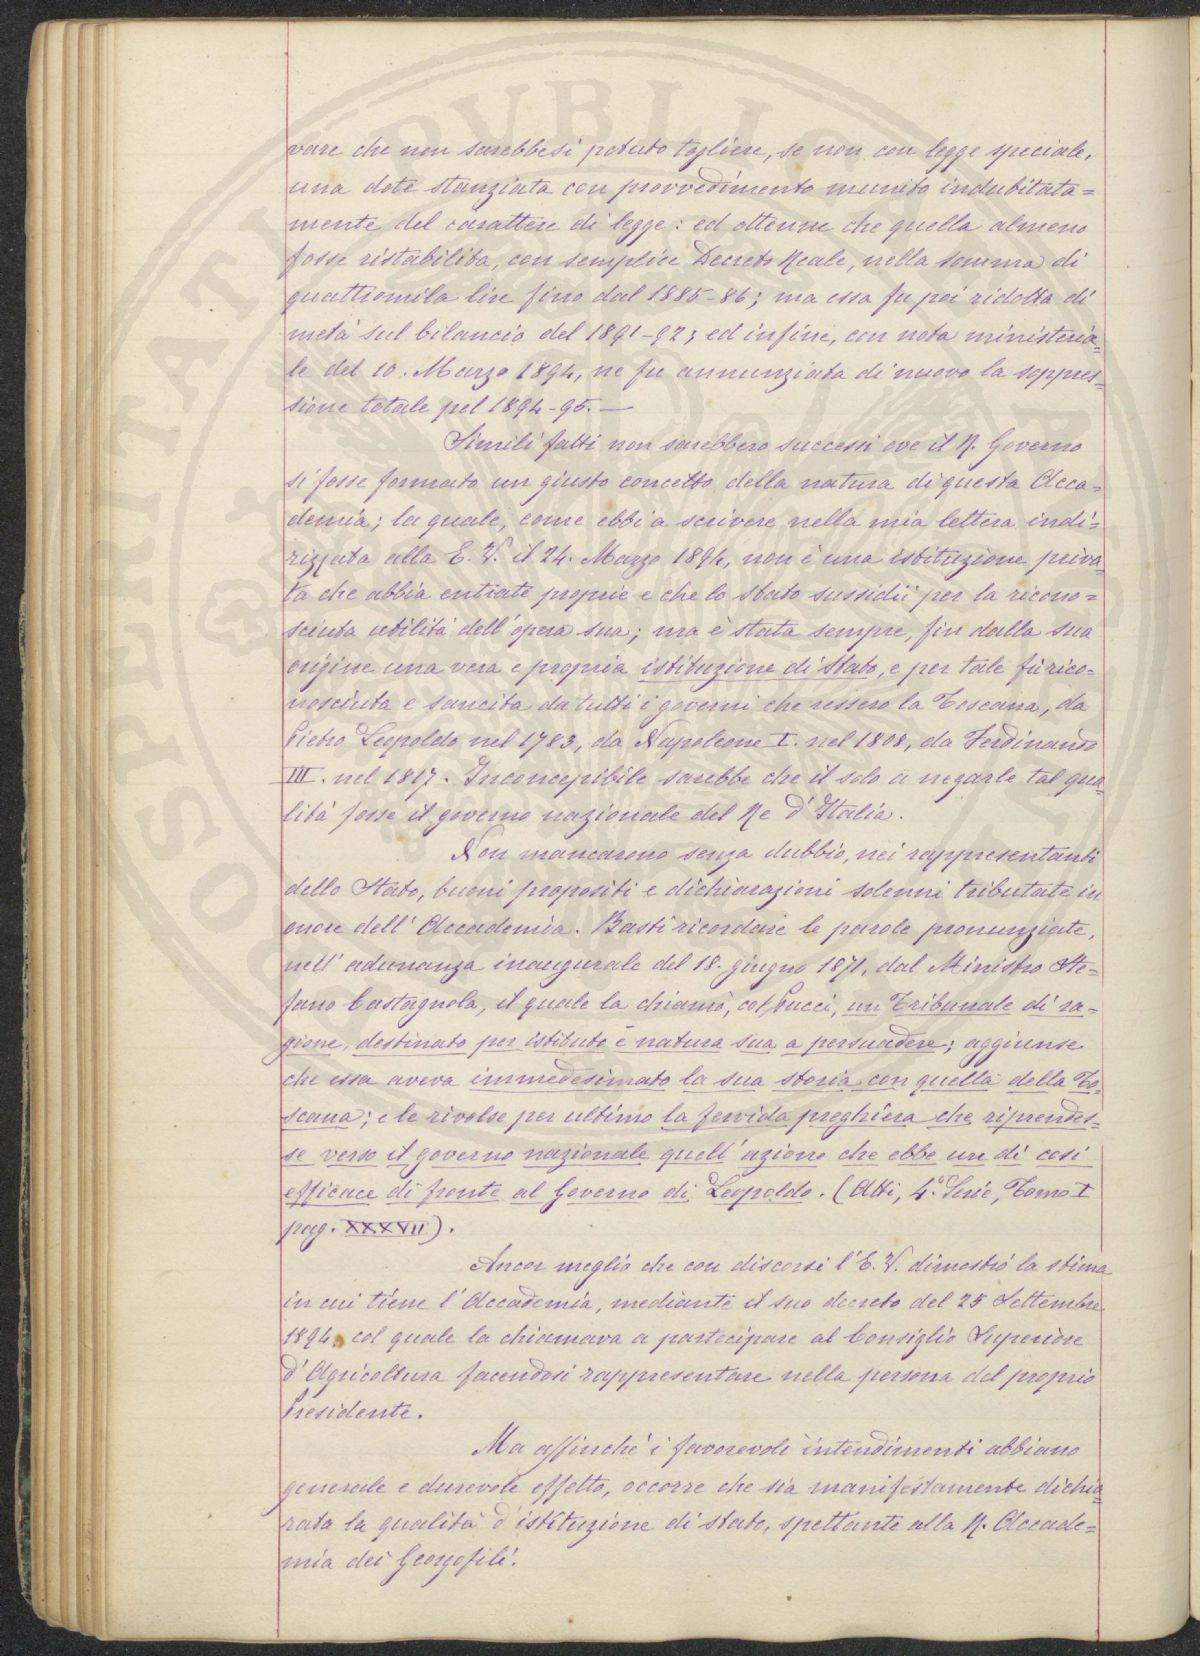 vare che non sarebbesi potuto togliere, se non con legge speciale,
una dote stanziata con provvedimento munito indubitata=
mente del carattere di legge: ed ottenne che quella almeno
fosse ristabilita, con semplice Decreto Reale, nella somma di
quattromila lire fino dal 1885-86; ma essa fu poi ridotta di
metà sul bilancio del 1891-92; ed infine, con nota ministeria=
le del 10. Marzo 1894, ne fu annunziata di nuovo la soppres=
sione totale pel 1894-95. —
Simili fatti non sarebbero successi ove il R. Governo
si fosse formato un giusto concetto della natura di questa Acca=
demia; la quale, come ebbi a scrivere nella mia lettera indi=
rizzata alla E. V. il 24. Marzo 1894, non è una istituzione priva=
ta che abbia entrate proprie e che lo Stato sussidii per la ricono=
sciuta utilità dell'opera sua; ma è stata sempre, fin dalla sua
origine una vera e propria istituzione di Stato, e per tale fu rico=
nosciuta e sancita da tutti i governi che ressero la Toscana, da
Pietro Leopoldo nel 1783, da Napoleone I. nel 1808, da Ferdinando
III. nel 1817. Inconcepibile sarebbe che il solo a negarle tal qua=
lità fosse il governo nazionale del Re d'Italia.
Non mancarono senza dubbio, nei rappresentanti
dello Stato, buoni propositi e dichiarazioni solenni tributate in
onore dell'Accademia. Basti ricordare le parole pronunziate,
nell'adunanza inaugurale del 18. giugno 1871, dal Ministro Ste=
fano Castagnola, il quale la chiamò, col Pucci, un Tribunale di ra=
gione, destinato per istituto e natura sua a persuadere; aggiunse
che essa aveva immedesimato la sua storia con quella della To=
scana; e le rivolse per ultimo la fervida preghiera che riprendes=
se verso il governo nazionale quell'azione che ebbe un dì così
efficace di fronte al Governo di Leopoldo. (Atti, 4.a Serie, Tomo I
pag. XXXVII).
Ancor meglio che con discorsi l'E. V. dimostrò la stima
in cui tiene l'Accademia, mediante il suo decreto del 25 Settembre
1894. col quale la chiamava a partecipare al Consiglio Superiore
d'Agricoltura facendosi rappresentare nella persona del proprio
Presidente.
Ma affinchè i favorevoli intendimenti abbiano
generale e durevole effetto, occorre che sia manifestamente dichia=
rata la qualità d'istituzione di Stato, spettante alla R. Accade=
mia dei Georgofili.
SOSPERITATI PVBLICAE